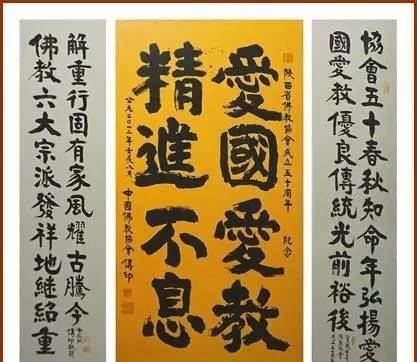 協會五十春秋知命年弘揚愛
國愛教優良傳統光前裕後
陝西省佛教協會成立五十周年 紀念
愛國愛教
精進不息
公元二〇一二年壬辰八月 中國佛教協會傳印
佛教六大宗派發祥地繼紹重
解重行固有家風耀古騰今
壬辰秋
傳印敬題